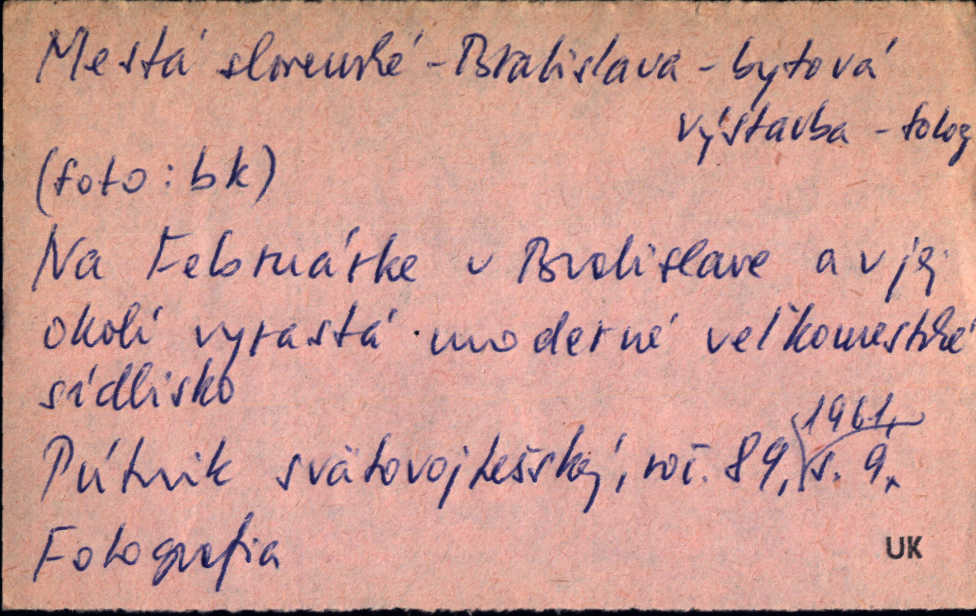 Mestá slovenské - Bratislava - bytová
výstavba - fotog
(foto: bk)
Na Februárke v Bratislave a v jej
okolí vyrastá moderné veľkomestské
sídlisko
Pútnik svätovojtešský, roč. 89, 1961, s. 9.
Fotografia
UK